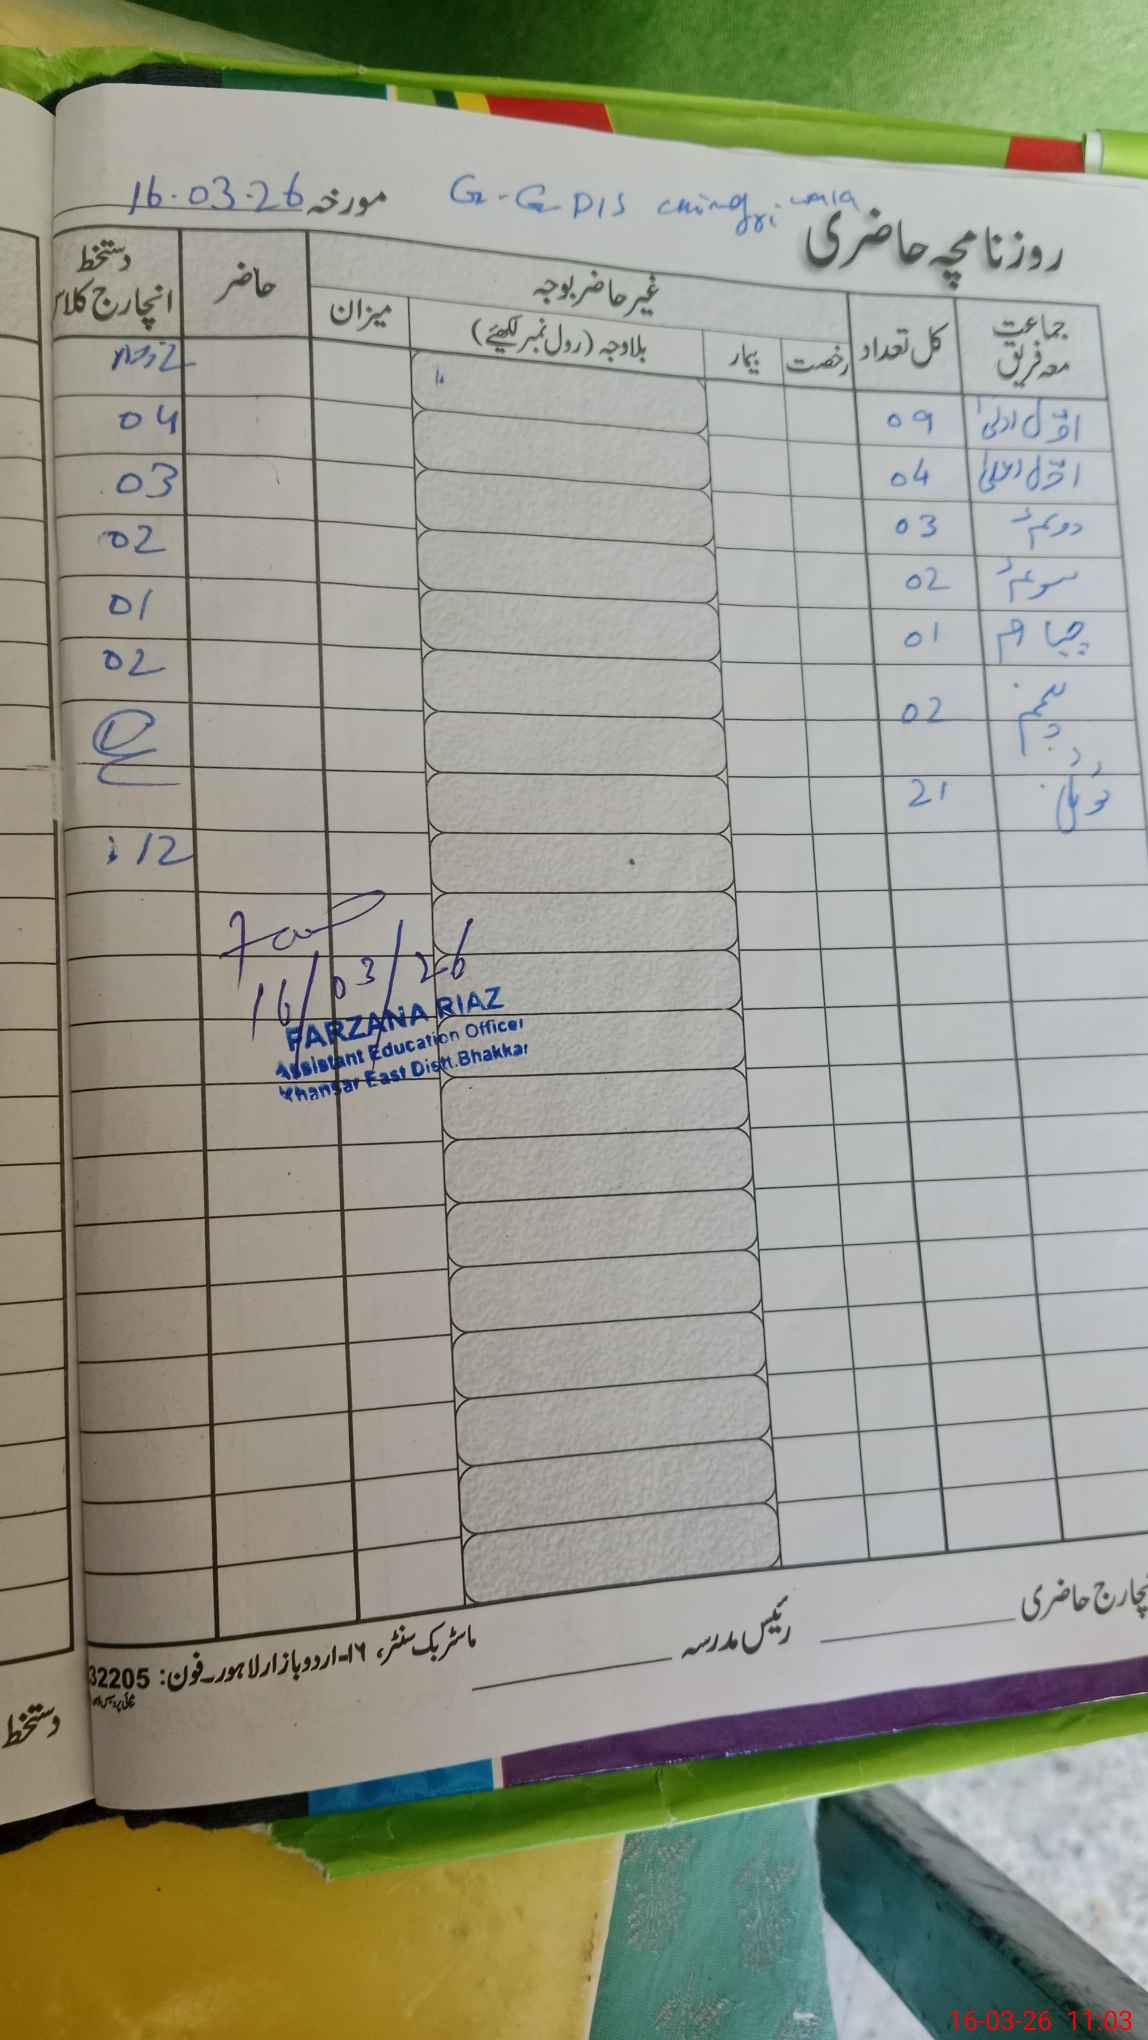 روزنامچہ حاضری G-G DIS مورخہ 16.03.26
جماعت معہ فریق
کل تعداد
غیر حاضر بوجہ
رخصت
بیمار
بلاوجہ (رول نمبر لکھیئے)
میزان
حاضر
دستخط انچارج کلاس
اوّل ادنیٰ 09
اوّل اعلیٰ 04 04
دوئم 03 03
سوئم 02 02
چہارم 01 01
پنجم 02 02
ٹوٹل 21
12
16/03/26
FARZANA RIAZ
Assistant Education Officer
Khansar East Distt.Bhakkar
انچارج حاضری
رئیس مدرسہ
ماسٹر بک سنٹر، ۱۶-اردو بازار لاہور۔فون: 32205
دستخط
16-03-26 11:03